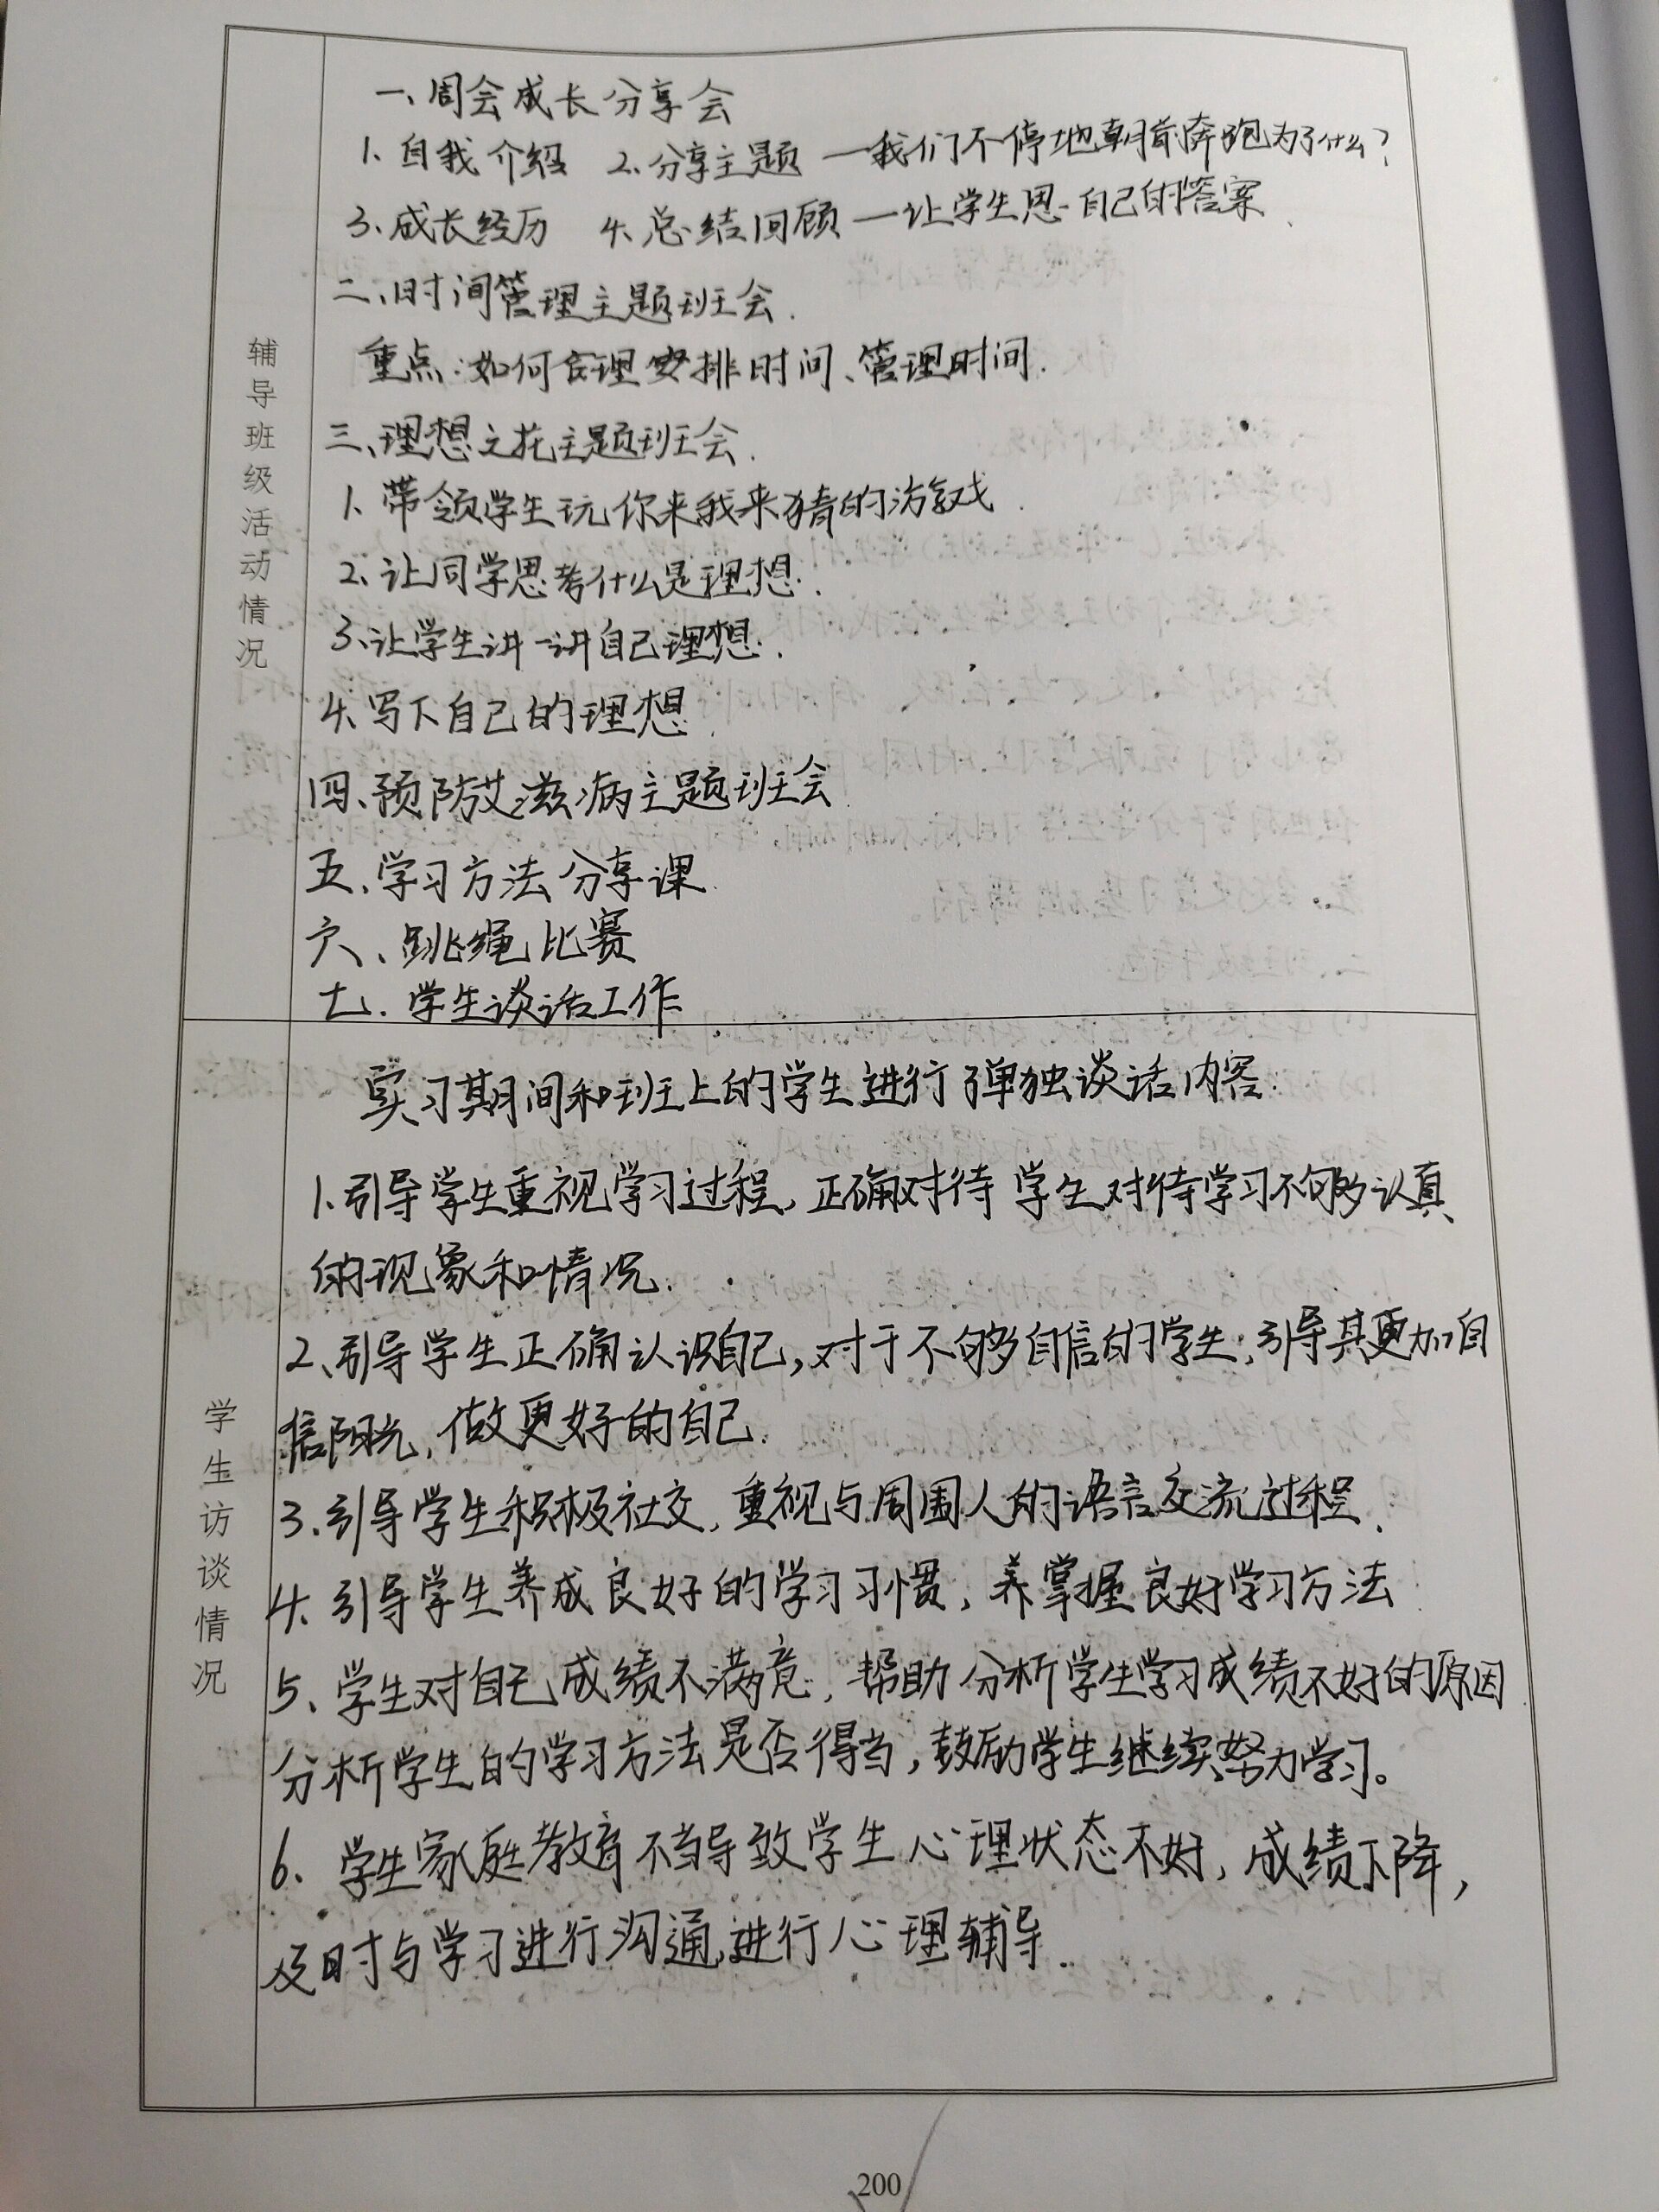 辅导班级活动情况
一、周会成长分享会
1、自我介绍 2、分享主题—我们不停地朝前奔跑为了什么？
3、成长经历 4、总结回顾—让学生思自己的答案
二、时间管理主题班会.
重点：如何合理安排时间、管理时间.
三、理想之花主题班会.
1、带领学生玩你来我来猜的游戏.
2、让同学思考什么是理想.
3、让学生讲一讲自己理想.
4、写下自己的理想.
四、预防艾滋病主题班会.
五、学习方法分享课.
六、跳绳比赛
七. 学生谈话工作
学生访谈情况
实习期间和班上的学生进行了单独谈话内容：
1、引导学生重视学习过程，正确对待学生对待学习不够认真
的现象和情况.
2、引导学生正确认识自己，对于不够自信的学生，引导其更加自
信阳光，做更好的自己.
3、引导学生积极社交，重视与周围人的语言交流过程.
4、引导学生养成良好的学习习惯，养掌握良好学习方法
5、学生对自己成绩不满意，帮助分析学生学习成绩不好的原因
分析学生的学习方法是否得当，鼓励学生继续努力学习。
6、学生家庭教育不当导致学生心理状态不好，成绩下降，
及时与学习进行沟通，进行心理辅导.
200